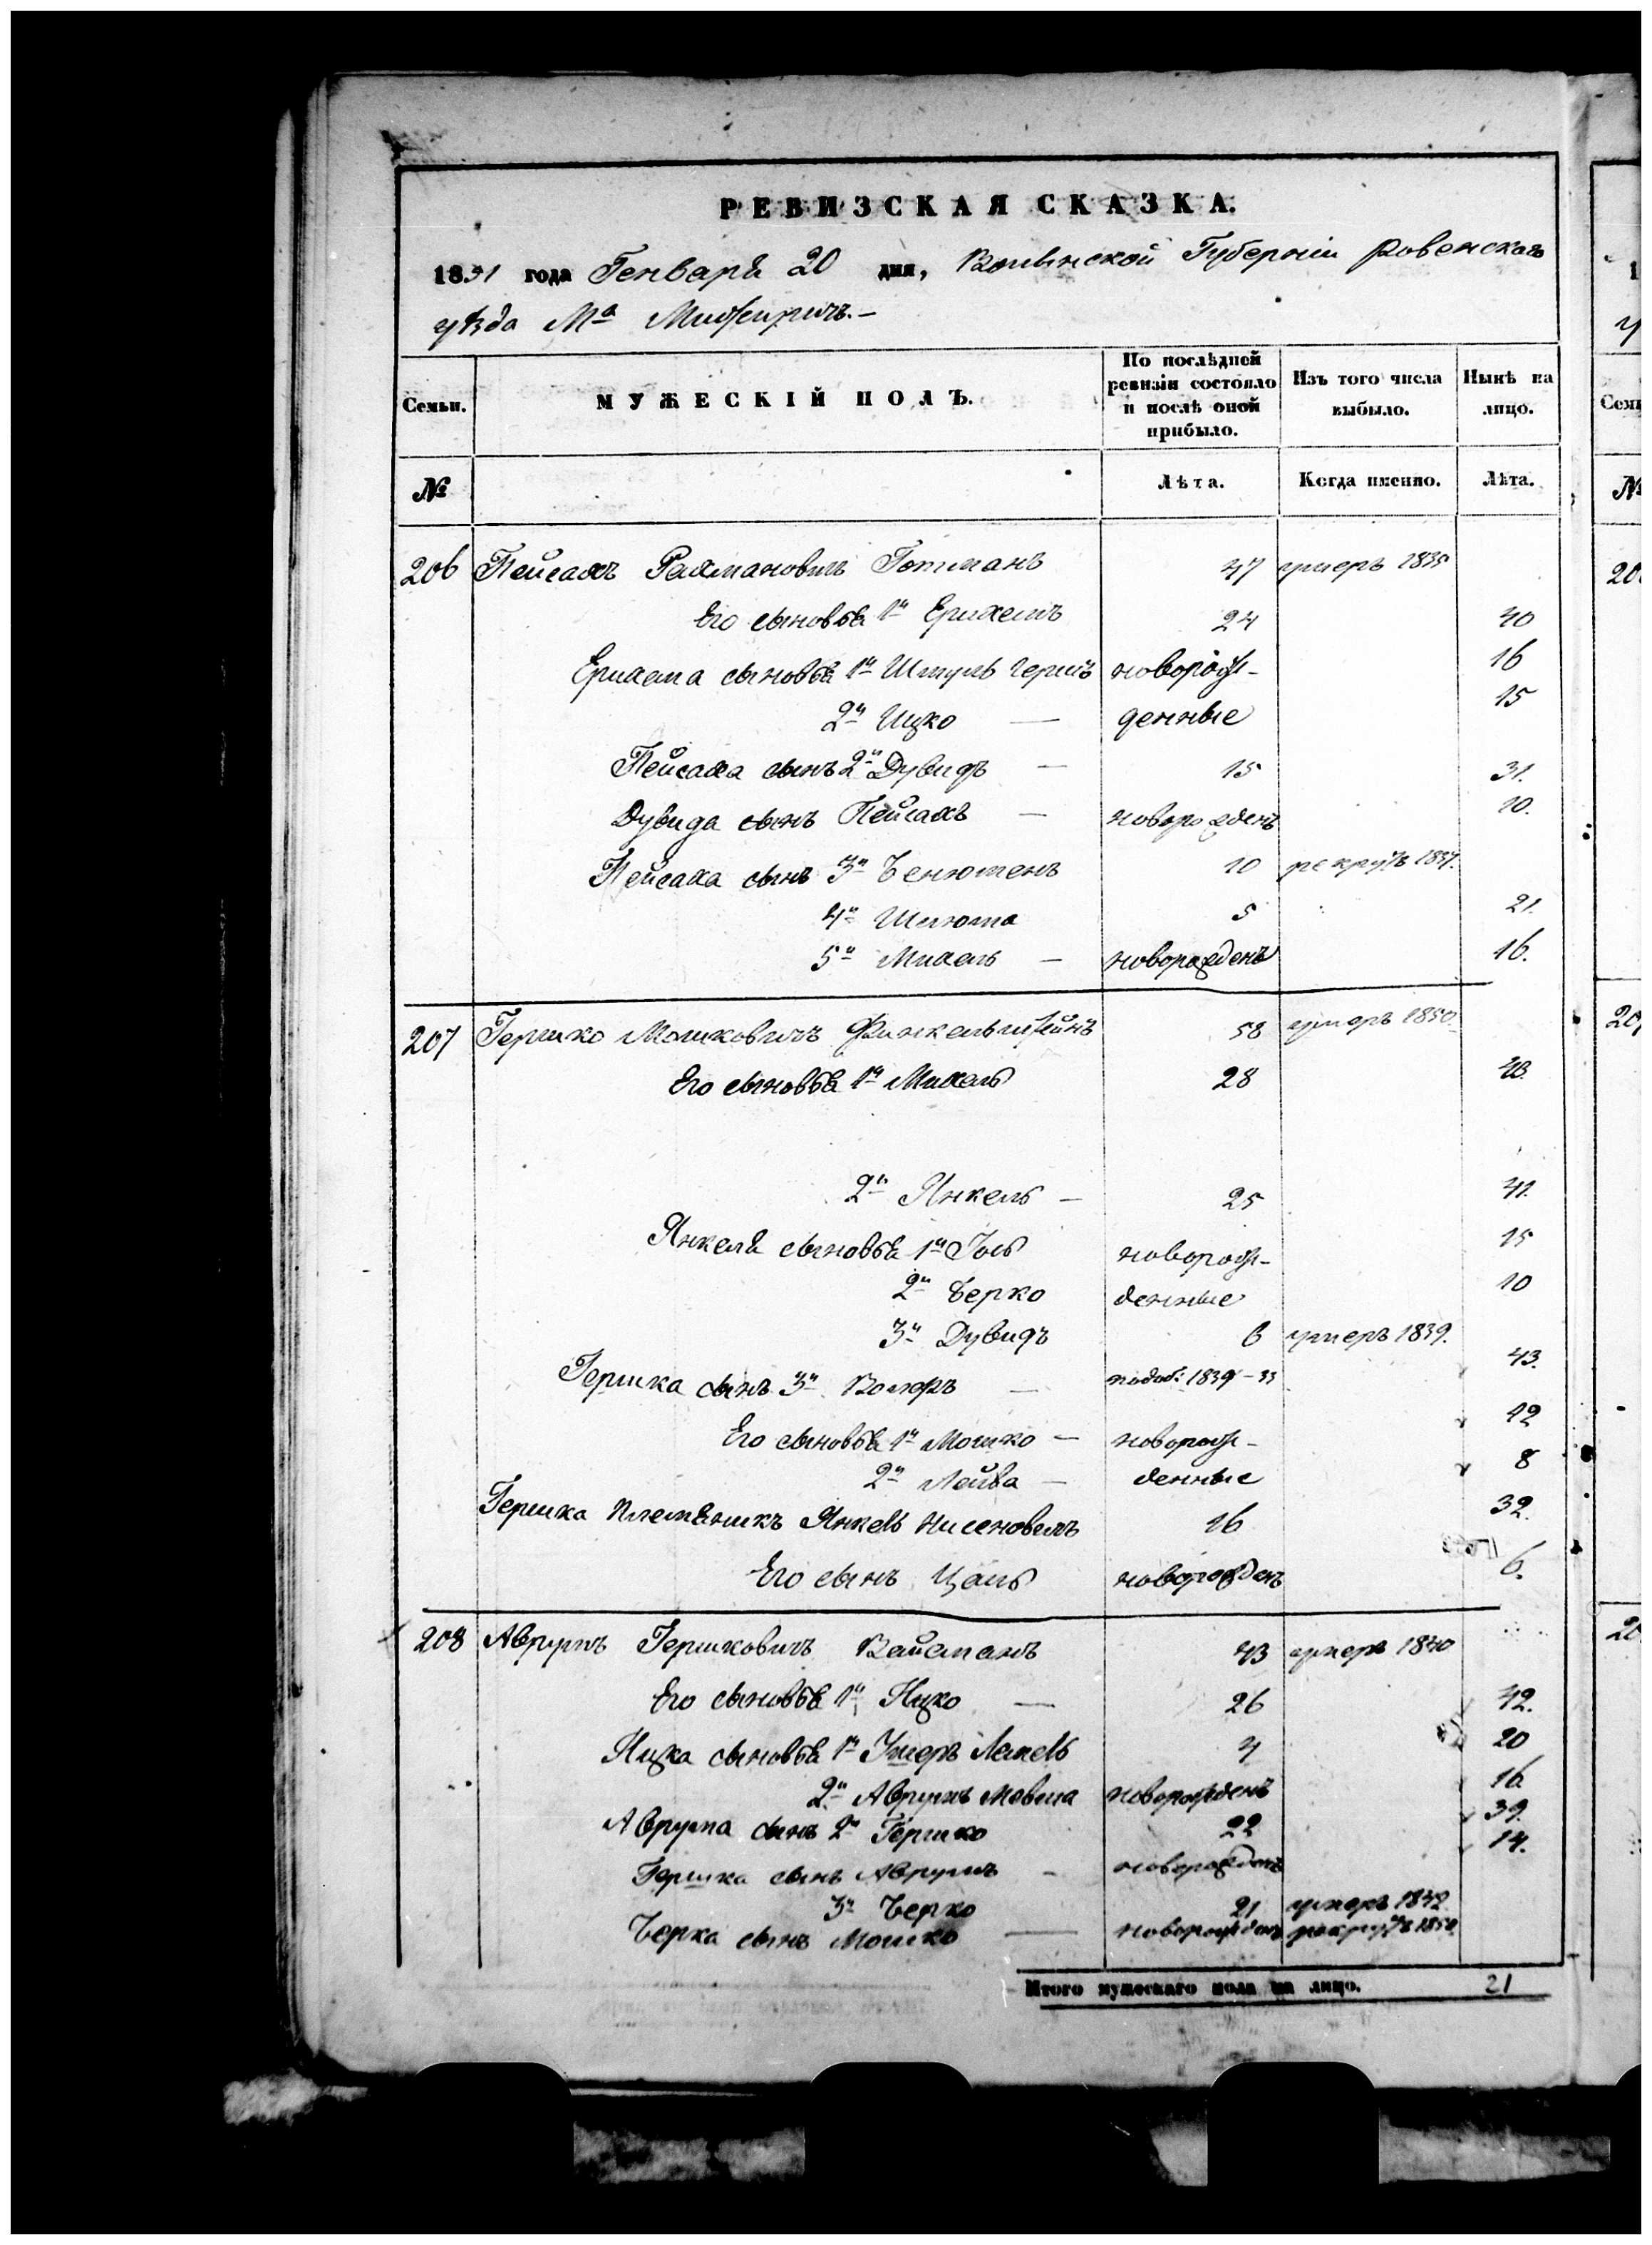 РЕВИЗСКАЯ СКАЗКА.
1851 года Генваря 20 дня, Волынской Губерніи Ровенскаго
уѣзда Мᵃ Межирича.-
Семьи.
МУЖЕСКІЙ ПОЛЪ.
По послѣдней ревизіи состояло и послѣ оной прибыло.
Изъ того числа выбыло.
Нынѣ на лицо.
№
Лѣта.
Когда именно.
Лѣта.
206 Пейсахъ Рахмановичъ Готманъ 47 умеръ 1835
Его сыновья 1й Ерихемъ 24 40
Ерихема сыновья 1й Шмуль Гершъ новорож- 16
2й Ицко — денные 15
Пейсаха сынъ 2й Дувидъ — 15 31.
Дувида сынъ Пейсахъ — новорожденъ 10.
Пейсаха сынъ 3й Бенюменъ 10 рекрутъ 1837.
4й Шлюма 5 21.
5й Михель — новорожденъ 16.
207 Гершко Мошковичъ Финкельштейнъ 58 умеръ 1850.
Его сыновья 1й Михель 28
2й Янкель — 25 41.
Янкеля сыновья 1й Іось новорож- 15
2й Берко денные 10
3й Дувидъ 6 умеръ 1839.
Гершка сынъ 3й Волфъ — 1839 - 33 43.
Его сыновья 1й Мошко — новорож- 12
2й Лейба — денные 8
Гершка племяникъ Янкель Нисеновичъ 16 32.
Его сынъ Цаль новорожденъ 6.
208 Аврумъ Гершковичъ Вайсманъ 43 умеръ 1840
Его сыновья 1й Ицко — 26 42.
Ицка сыновья 1й Ушеръ Лемель 4 20
2й Аврумъ Мовша новорожденъ 16
Аврума сынъ 2й Гершко 22 39.
Гершка сынъ Аврумъ - новорожденъ 14.
3й Берко 21 умеръ 1842
Берка сынъ Мошко — новорожденъ рекрутъ 1850.
Итого мужескаго пола на лицо. 21